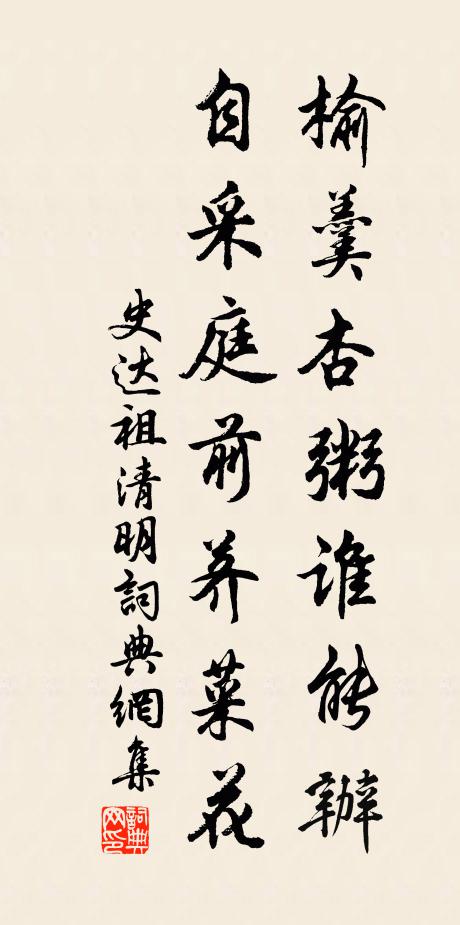 榆羹杏粥谁能辦
自采庭前荠菜花
史达祖清明詞典網集
詞典网印